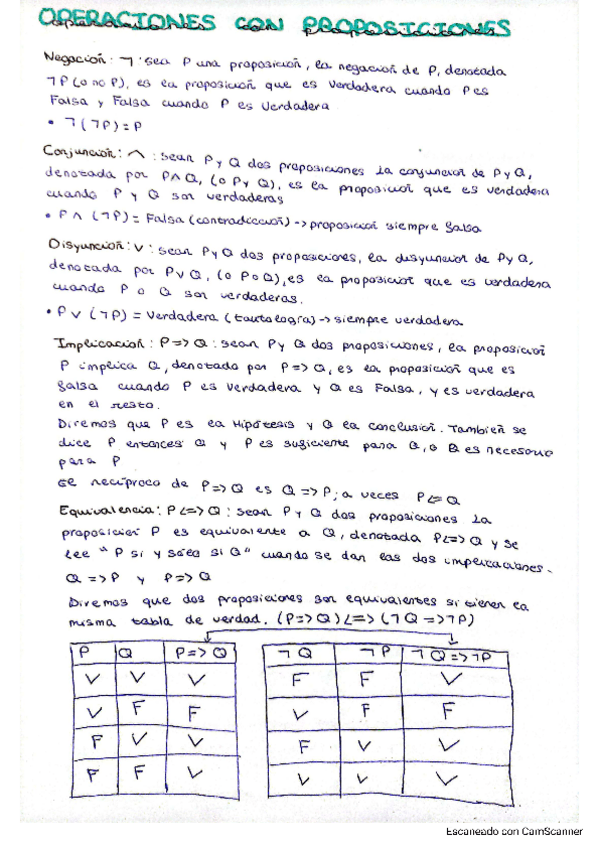 OPERACIONES CON PROPOSICIONES
Negación: ¬ : sea P una proposición, la negación de P, denotada
¬P (o no P), es la proposición que es verdadera cuando P es
Falsa y Falsa cuando P es Verdadera
• ¬(¬P) = P
Conjunción: ∧ : sean P y Q dos proposiciones la conjunción de P y Q,
denotada por P∧Q, (o P y Q), es la proposición que es verdadera
cuando P y Q son verdaderas
• P ∧ (¬P) = Falsa (contradicción) -> proposición siempre falsa
Disyunción: ∨ : sean P y Q dos proposiciones, la disyunción de P y Q,
denotada por P∨Q, (o P o Q), es la proposición que es verdadera
cuando P o Q son verdaderas.
• P ∨ (¬P) = Verdadera (tautología) -> siempre verdadera
Implicación: P => Q : sean P y Q dos proposiciones, la proposición
P implica Q, denotado por P => Q, es la proposición que es
falsa cuando P es Verdadera y Q es Falsa, y es verdadera
en el resto.
Diremos que P es la Hipótesis y Q la conclusión. También se
dice P entonces Q y P es suficiente para Q, o Q es necesario
para P
el recíproco de P=>Q es Q=>P; a veces P<=Q
Equivalencia: P<=>Q : sean P y Q dos proposiciones la
proposición P es equivalente a Q, denotada P<=>Q y se
lee "P si y sólo si Q" cuando se dan las dos implicaciones.
Q =>P y P=>Q
Diremos que dos proposiciones son equivalentes si tienen la
misma tabla de verdad. (P=>Q)<=>(¬Q=>¬P)
P Q P=>Q ¬Q ¬P ¬Q=>¬P
V V V F F V
V F F V F F
F V V F V V
F F V V V V
Escaneado con CamScanner